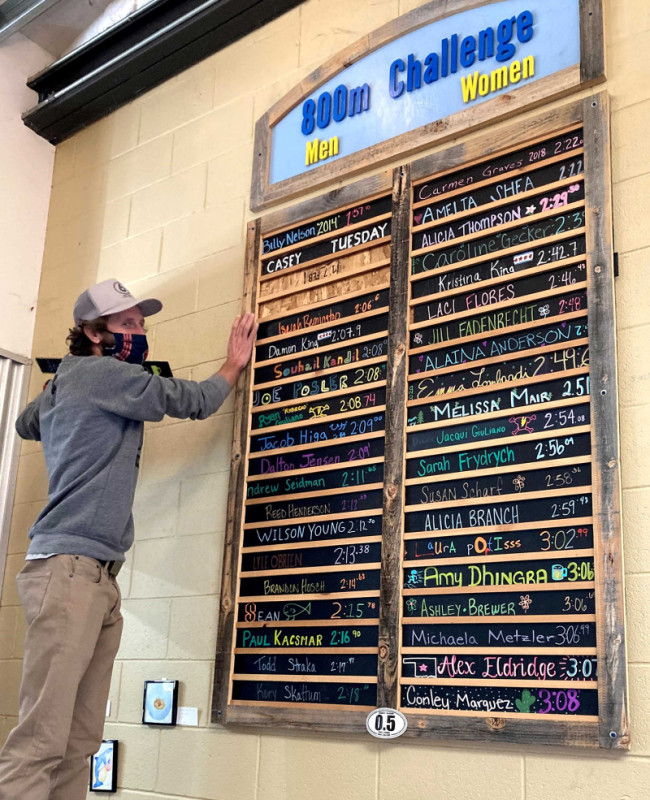 800m Challenge
Men
Women
Billy Nelson "2014" 1:57
CASEY TUESDAY
Isaiah Remington 2:06
Damon King 2:07.9
Souhail Kandil 2:08
JOE POSLER 2:08
Ryan 2:08 74
Jacob Higa 2:09.00
Dalton Jensen 2:09
Andrew Seidman 2:11
REED HENDERSON
WILSON YOUNG 2:12.70
O'BRIEN 2:13.38
BRANDON HOSCH 2:14.63
SEAN 2:15 78
PAUL KACSMAR 2:16 90
Todd Straka 2:17
Kory Skattum 2:18
Carmen Graves 2018 2:22
AMELIA SHEA
ALICIA THOMPSON 2:29.50
Caroline Gecker
Kristina King 2:42.7
LACI FLORES 2:46
JILL FADENBRECHT 2:48
ALAINA ANDERSON
Emma Lombardi 2:49
MELISSA MAIR 2.51
JACQUI GIULIANO 2:54.08
Sarah FRYDRYCH 2:56 09
SUSAN SCHARF 2:58
ALICIA BRANCH 2:59
LAURA POTISSS 3:02
AMY DHINGRA 3:06
ASHLEY BREWER 3:06
Michaela METZLER 3:06 99
ALEX ELDRIDGE 3:07
Conley MARQUEZ 3:08
0.5